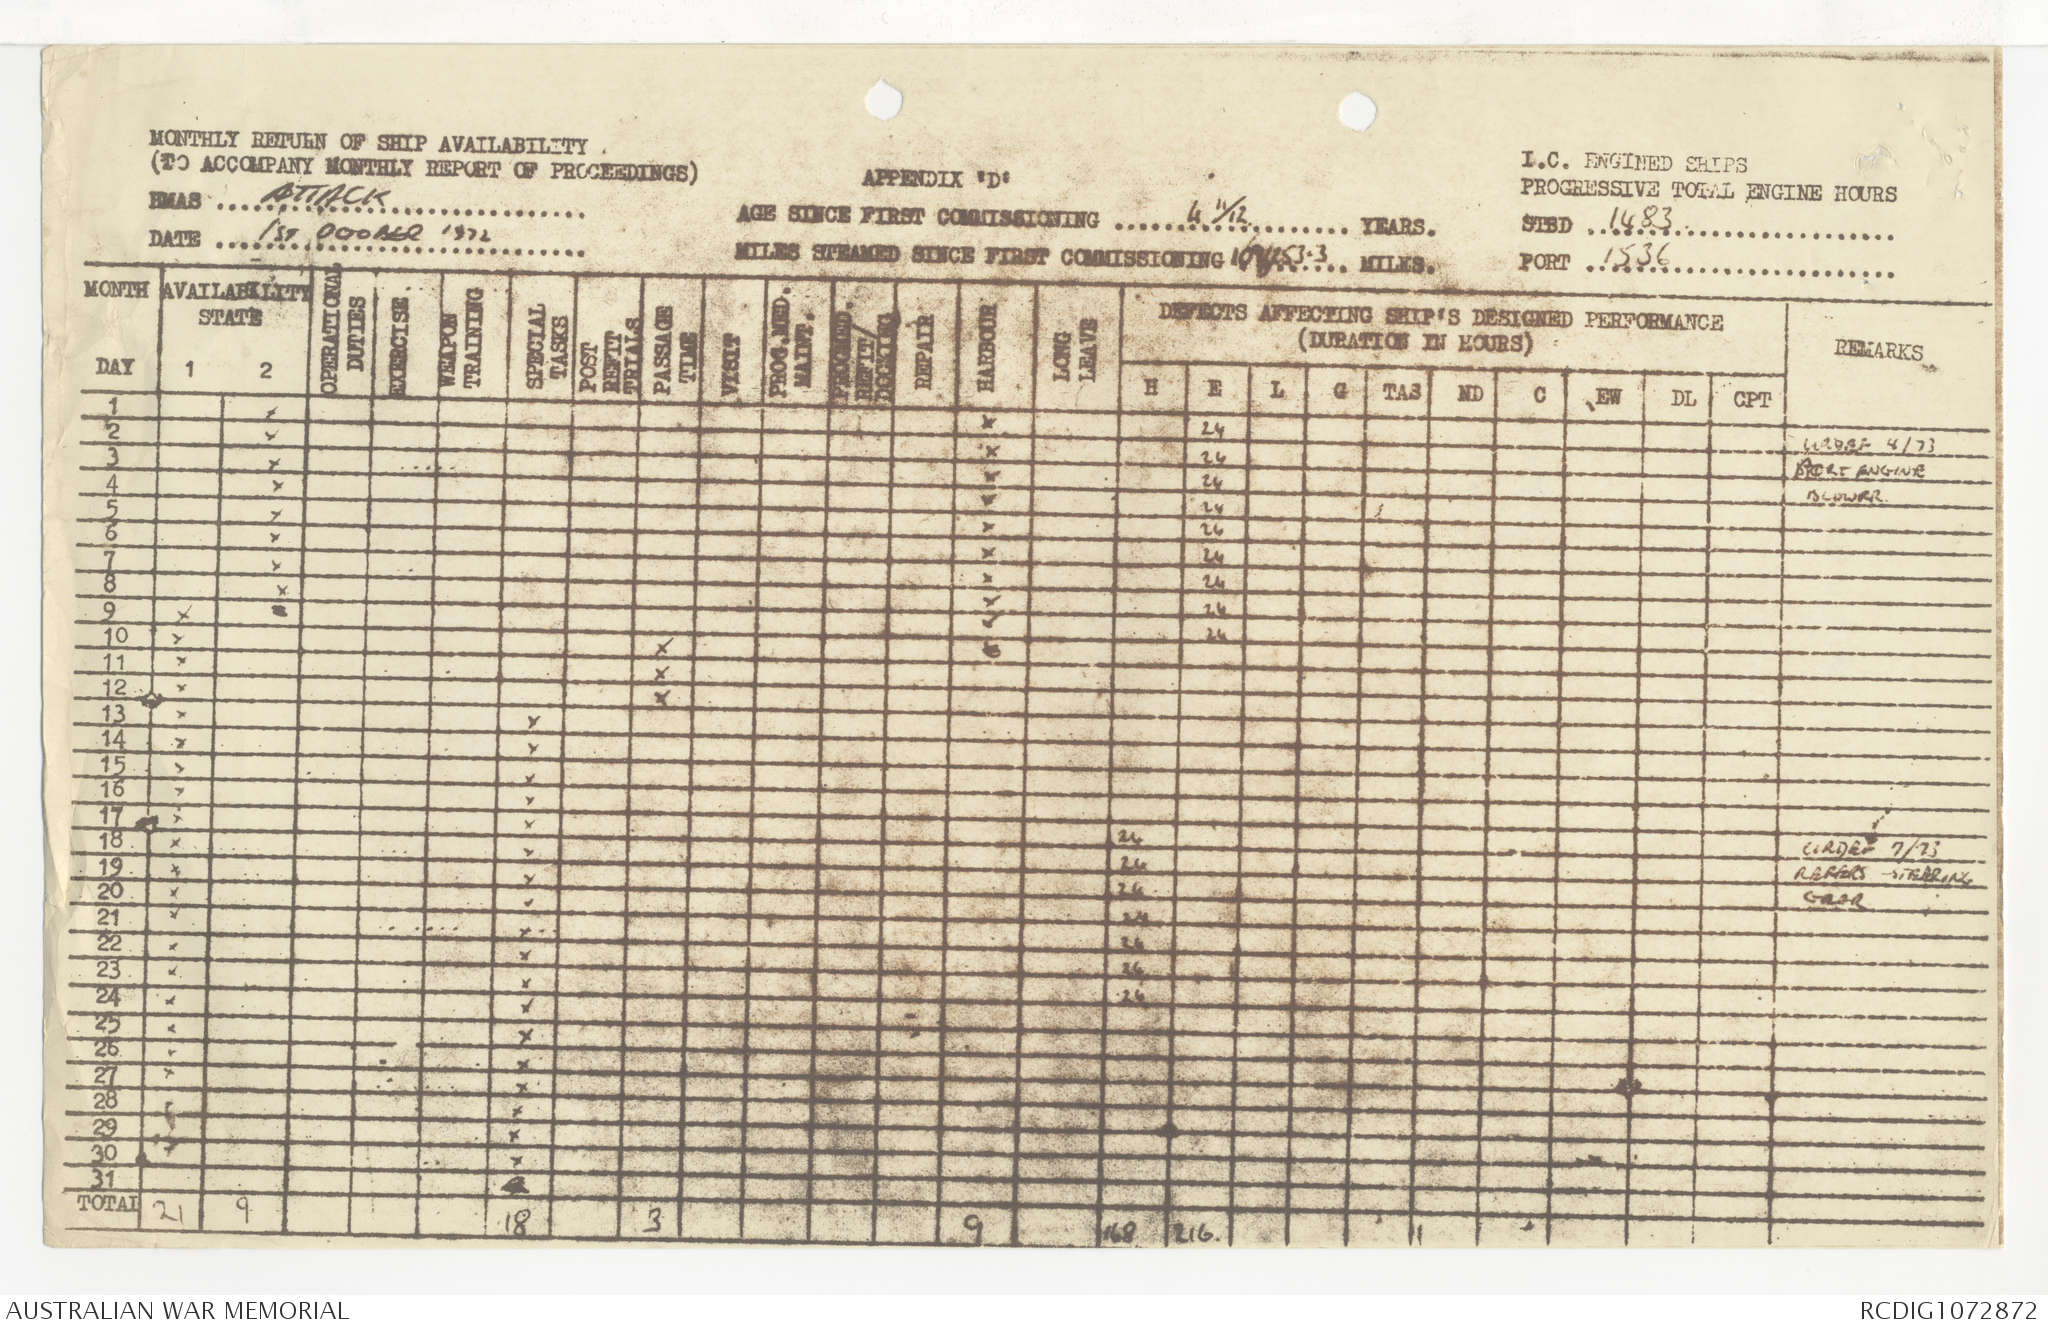 MONTHLY RETURN OF SHIP AVAILABILITY
(TO ACCOMPANY MONTHLY REPORT OF PROCEEDINGS)
HMAS ATTACK
DATE 1ST 1972
APPENDIX "D"
AGE SINCE FIRST COMMISSIONING 4 11/12 YEARS.
MILES STEAMED SINCE FIRST COMMISSIONING MILES.
I.C. ENGINED SHIPS
PROGRESSIVE TOTAL ENGINE HOURS
STBD 1483
PORT 1536
MONTH AVAILABILITY STATE OPERATIONAL DUTIES EXERCISE WEAPON TRAINING SPECIAL TASKS POST REFIT TRIALS PASSAGE TIME VISIT PROG.MED. MAINT. PROGMED. REFIT/DOCKING REPAIR HARBOUR LONG LEAVE
DEFECTS AFFECTING SHIP'S DESIGNED PERFORMANCE
(DURATION IN HOURS)
REMARKS
DAY 1 2 H E L G TAS ND C EW DL CPT
1 x x 24
2 x x 24 URDEF 4/73
3 x x 24 PORT ENGINE
4 x x 24 BLOWER
5 x x 24
6 x x 24
7 x x 24
8 x x 24
9 x x 24
10 x x
11 x x
12 x x
13 x x
14 x x
15 x x
16 x x
17 x x
18 x x 24 URDEF 7/73
19 x x 24 REFERS STEERING
20 x x 24 GEAR
21 x x 24
22 x x 24
23 x x 24
24 x x 24
25 x x
26 x x
27 x x
28 x
29 x
30 x
31
TOTAL 21 9 18 3 9 168 216.
AUSTRALIAN WAR MEMORIAL
RCDIG1072872